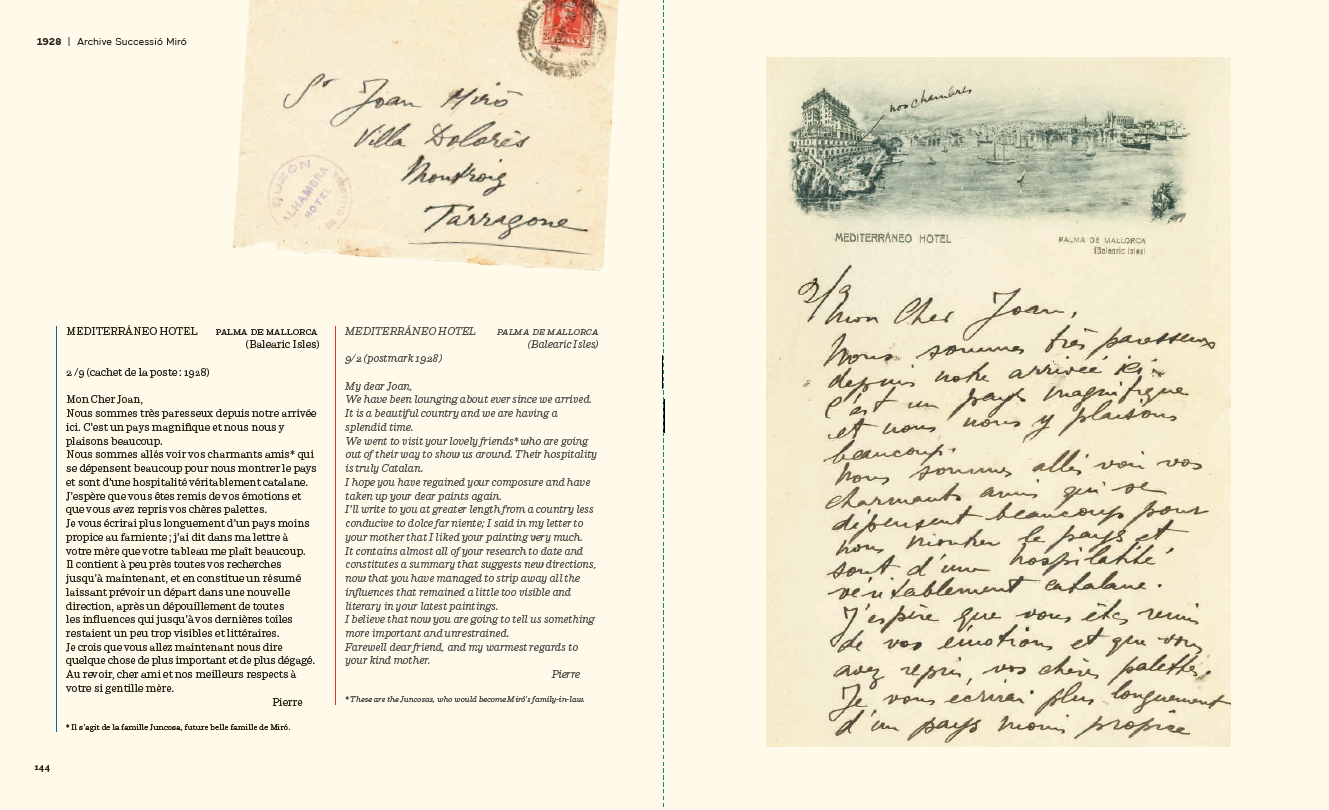 1928 | Archive Successió Miró
Sr Joan Miró
Villa Dolorès
Montroig
Tarragone
BUZÓN
ALHAMBRA
HOTEL
MEDITERRÁNEO HOTEL PALMA DE MALLORCA
(Balearic Isles)
2 /9 (cachet de la poste : 1928)
Mon Cher Joan,
Nous sommes très paresseux depuis notre arrivée
ici. C’est un pays magnifique et nous nous y
plaisons beaucoup.
Nous sommes allés voir vos charmants amis* qui
se dépensent beaucoup pour nous montrer le pays
et sont d’une hospitalité véritablement catalane.
J’espère que vous êtes remis de vos émotions et
que vous avez repris vos chères palettes.
Je vous écrirai plus longuement d’un pays moins
propice au farniente ; j’ai dit dans ma lettre à
votre mère que votre tableau me plaît beaucoup.
Il contient à peu près toutes vos recherches
jusqu’à maintenant, et en constitue un résumé
laissant prévoir un départ dans une nouvelle
direction, après un dépouillement de toutes
les influences qui jusqu’à vos dernières toiles
restaient un peu trop visibles et littéraires.
Je crois que vous allez maintenant nous dire
quelque chose de plus important et de plus dégagé.
Au revoir, cher ami et nos meilleurs respects à
votre si gentille mère.
Pierre
* Il s’agit de la famille Juncosa, future belle famille de Miró.
MEDITERRÁNEO HOTEL PALMA DE MALLORCA
(Balearic Isles)
9/2 (postmark 1928)
My dear Joan,
We have been lounging about ever since we arrived.
It is a beautiful country and we are having a
splendid time.
We went to visit your lovely friends* who are going
out of their way to show us around. Their hospitality
is truly Catalan.
I hope you have regained your composure and have
taken up your dear paints again.
I’ll write to you at greater length from a country less
conducive to dolce far niente; I said in my letter to
your mother that I liked your painting very much.
It contains almost all of your research to date and
constitutes a summary that suggests new directions,
now that you have managed to strip away all the
influences that remained a little too visible and
literary in your latest paintings.
I believe that now you are going to tell us something
more important and unrestrained.
Farewell dear friend, and my warmest regards to
your kind mother.
Pierre
* These are the Juncosas, who would become Miró’s family-in-law.
144
nos chambres
MEDITERRÁNEO HOTEL PALMA DE MALLORCA
(Balearic Isles)
2/9
Mon Cher Joan,
Nous sommes très paresseux
depuis notre arrivée ici.
C'est un pays magnifique
et nous nous y plaisons
beaucoup.
Nous sommes allés voir vos
charmants amis qui se
dépensent beaucoup pour
nous montrer le pays et
sont d'une hospitalité
véritablement catalane.
J'espère que vous êtes remis
de vos émotions et que vous
avez repris vos chères palettes.
Je vous écrirai plus longuement
d'un pays moins propice